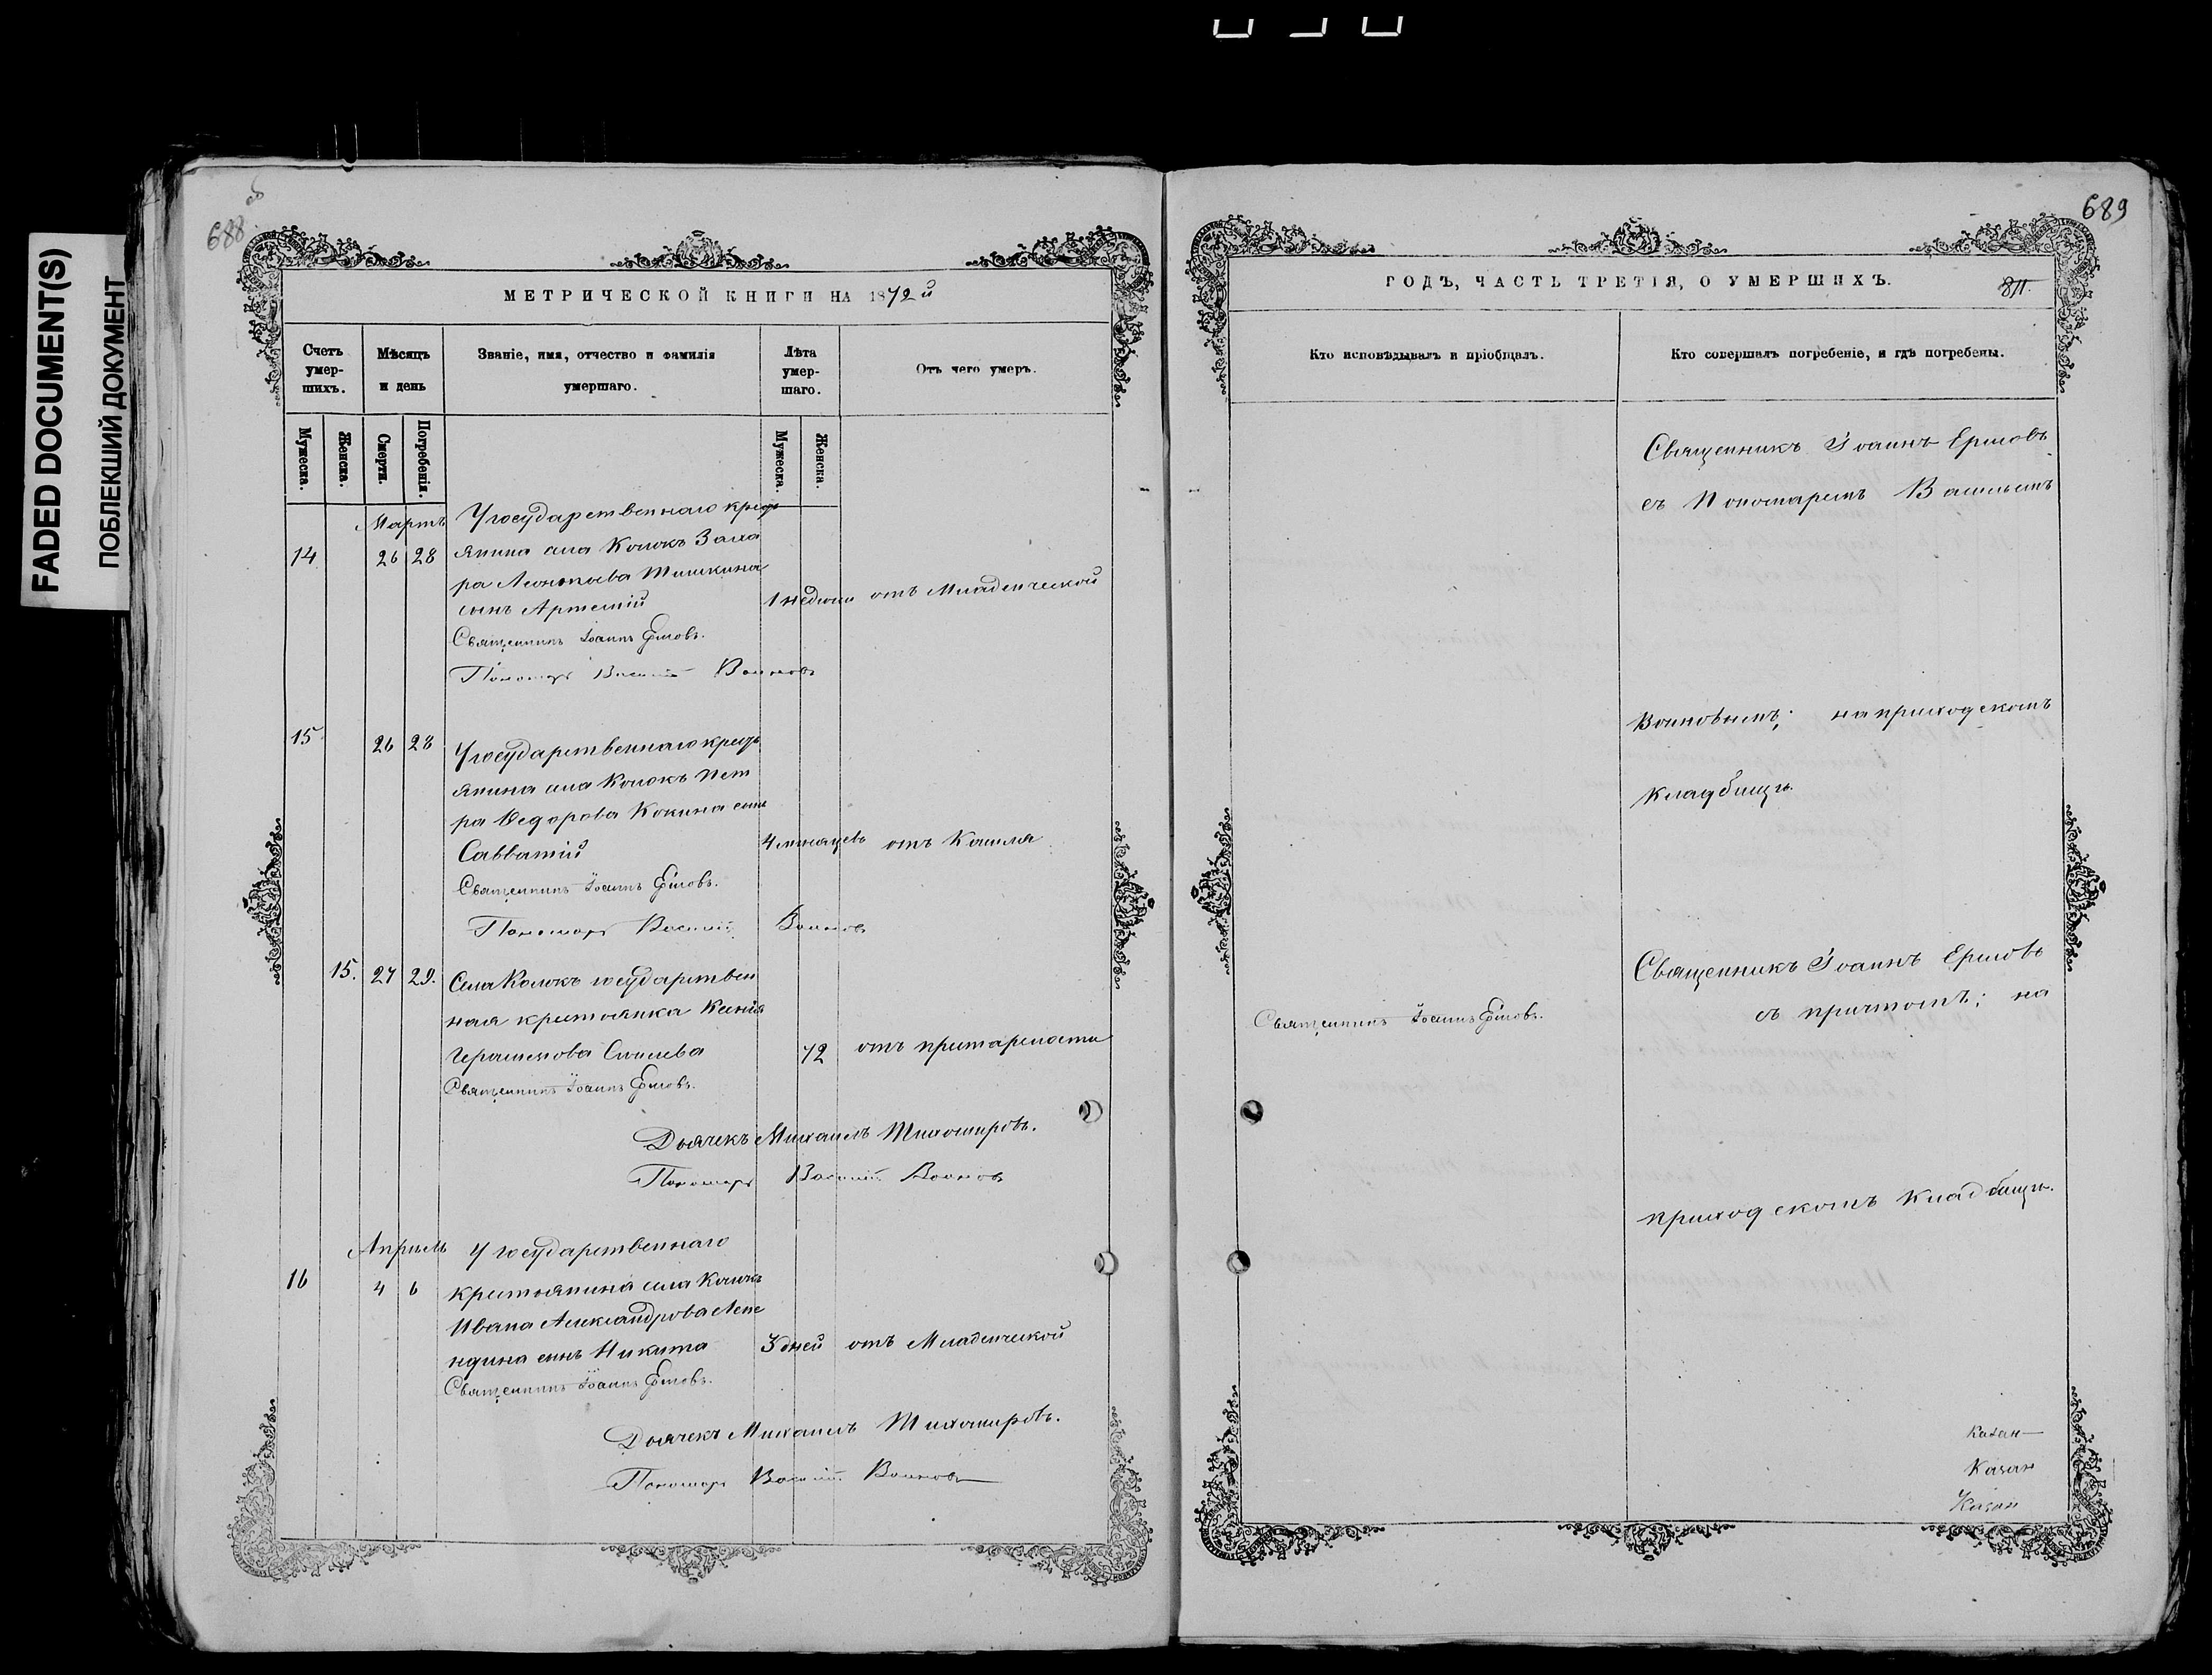 FADED DOCUMENT(S)
ПОБЛЕКШИЙ ДОКУМЕНТ
688 об
МЕТРИЧЕСКОЙ КНИГИ НА 1872й
Счетъ умер-шихъ.
Мѣсяцъ и день
Званіе, имя, отчество и фамилія умершаго.
Лѣта умер-шаго.
Отъ чего умеръ.
Мужеска.
Женска.
Смерти.
Погребенія.
Мужеска.
Женска.
Мартъ
У государственнаго кресть
14 26 28 янина села Колокъ Заха
ра Леонтьева Тишкина
сынъ Артемій 1 недели отъ Младенческой
Священникъ Іоаннъ Ершовъ.
Пономарь Василій Воиновъ
15 26 28 У государственнаго кресть
янина села Колокъ Пет
ра Ѳедорова Кокина сынъ
Савватій 4 месяцевъ отъ Кашля
Священникъ Іоаннъ Ершовъ.
Пономарь Василій Воиновъ
15. 27 29. Села Колокъ государствен
ная крестьянка Ксенія
Герасимова 72 отъ престарелости
Священникъ Іоаннъ Ершовъ.
Дьячекъ Михаилъ Тихомировъ.
Пономарь Василій Воиновъ
Апрель У государственнаго
16 4 6 крестьянина села Колокъ
Ивана Александрова Лепе
ндина сынъ Никита 3 дней отъ Младенческой
Священникъ Іоаннъ Ершовъ.
Дьячекъ Михаилъ Тихомировъ.
Пономарь Василій Воиновъ
689
ГОДЪ, ЧАСТЬ ТРЕТІЯ, О УМЕРШИХЪ.
811.
Кто исповѣдывалъ и пріобщалъ.
Кто совершалъ погребеніе, и гдѣ погребены.
Священникъ Іоаннъ Ершовъ
съ Пономаремъ Васильемъ
Воиновымъ; на приходскомъ
Кладбищѣ.
Священникъ Іоаннъ Ершовъ.
Священникъ Іоаннъ Ершовъ
съ причтомъ; на
приходскомъ Кладбищѣ.
Казан
Казан
Казан